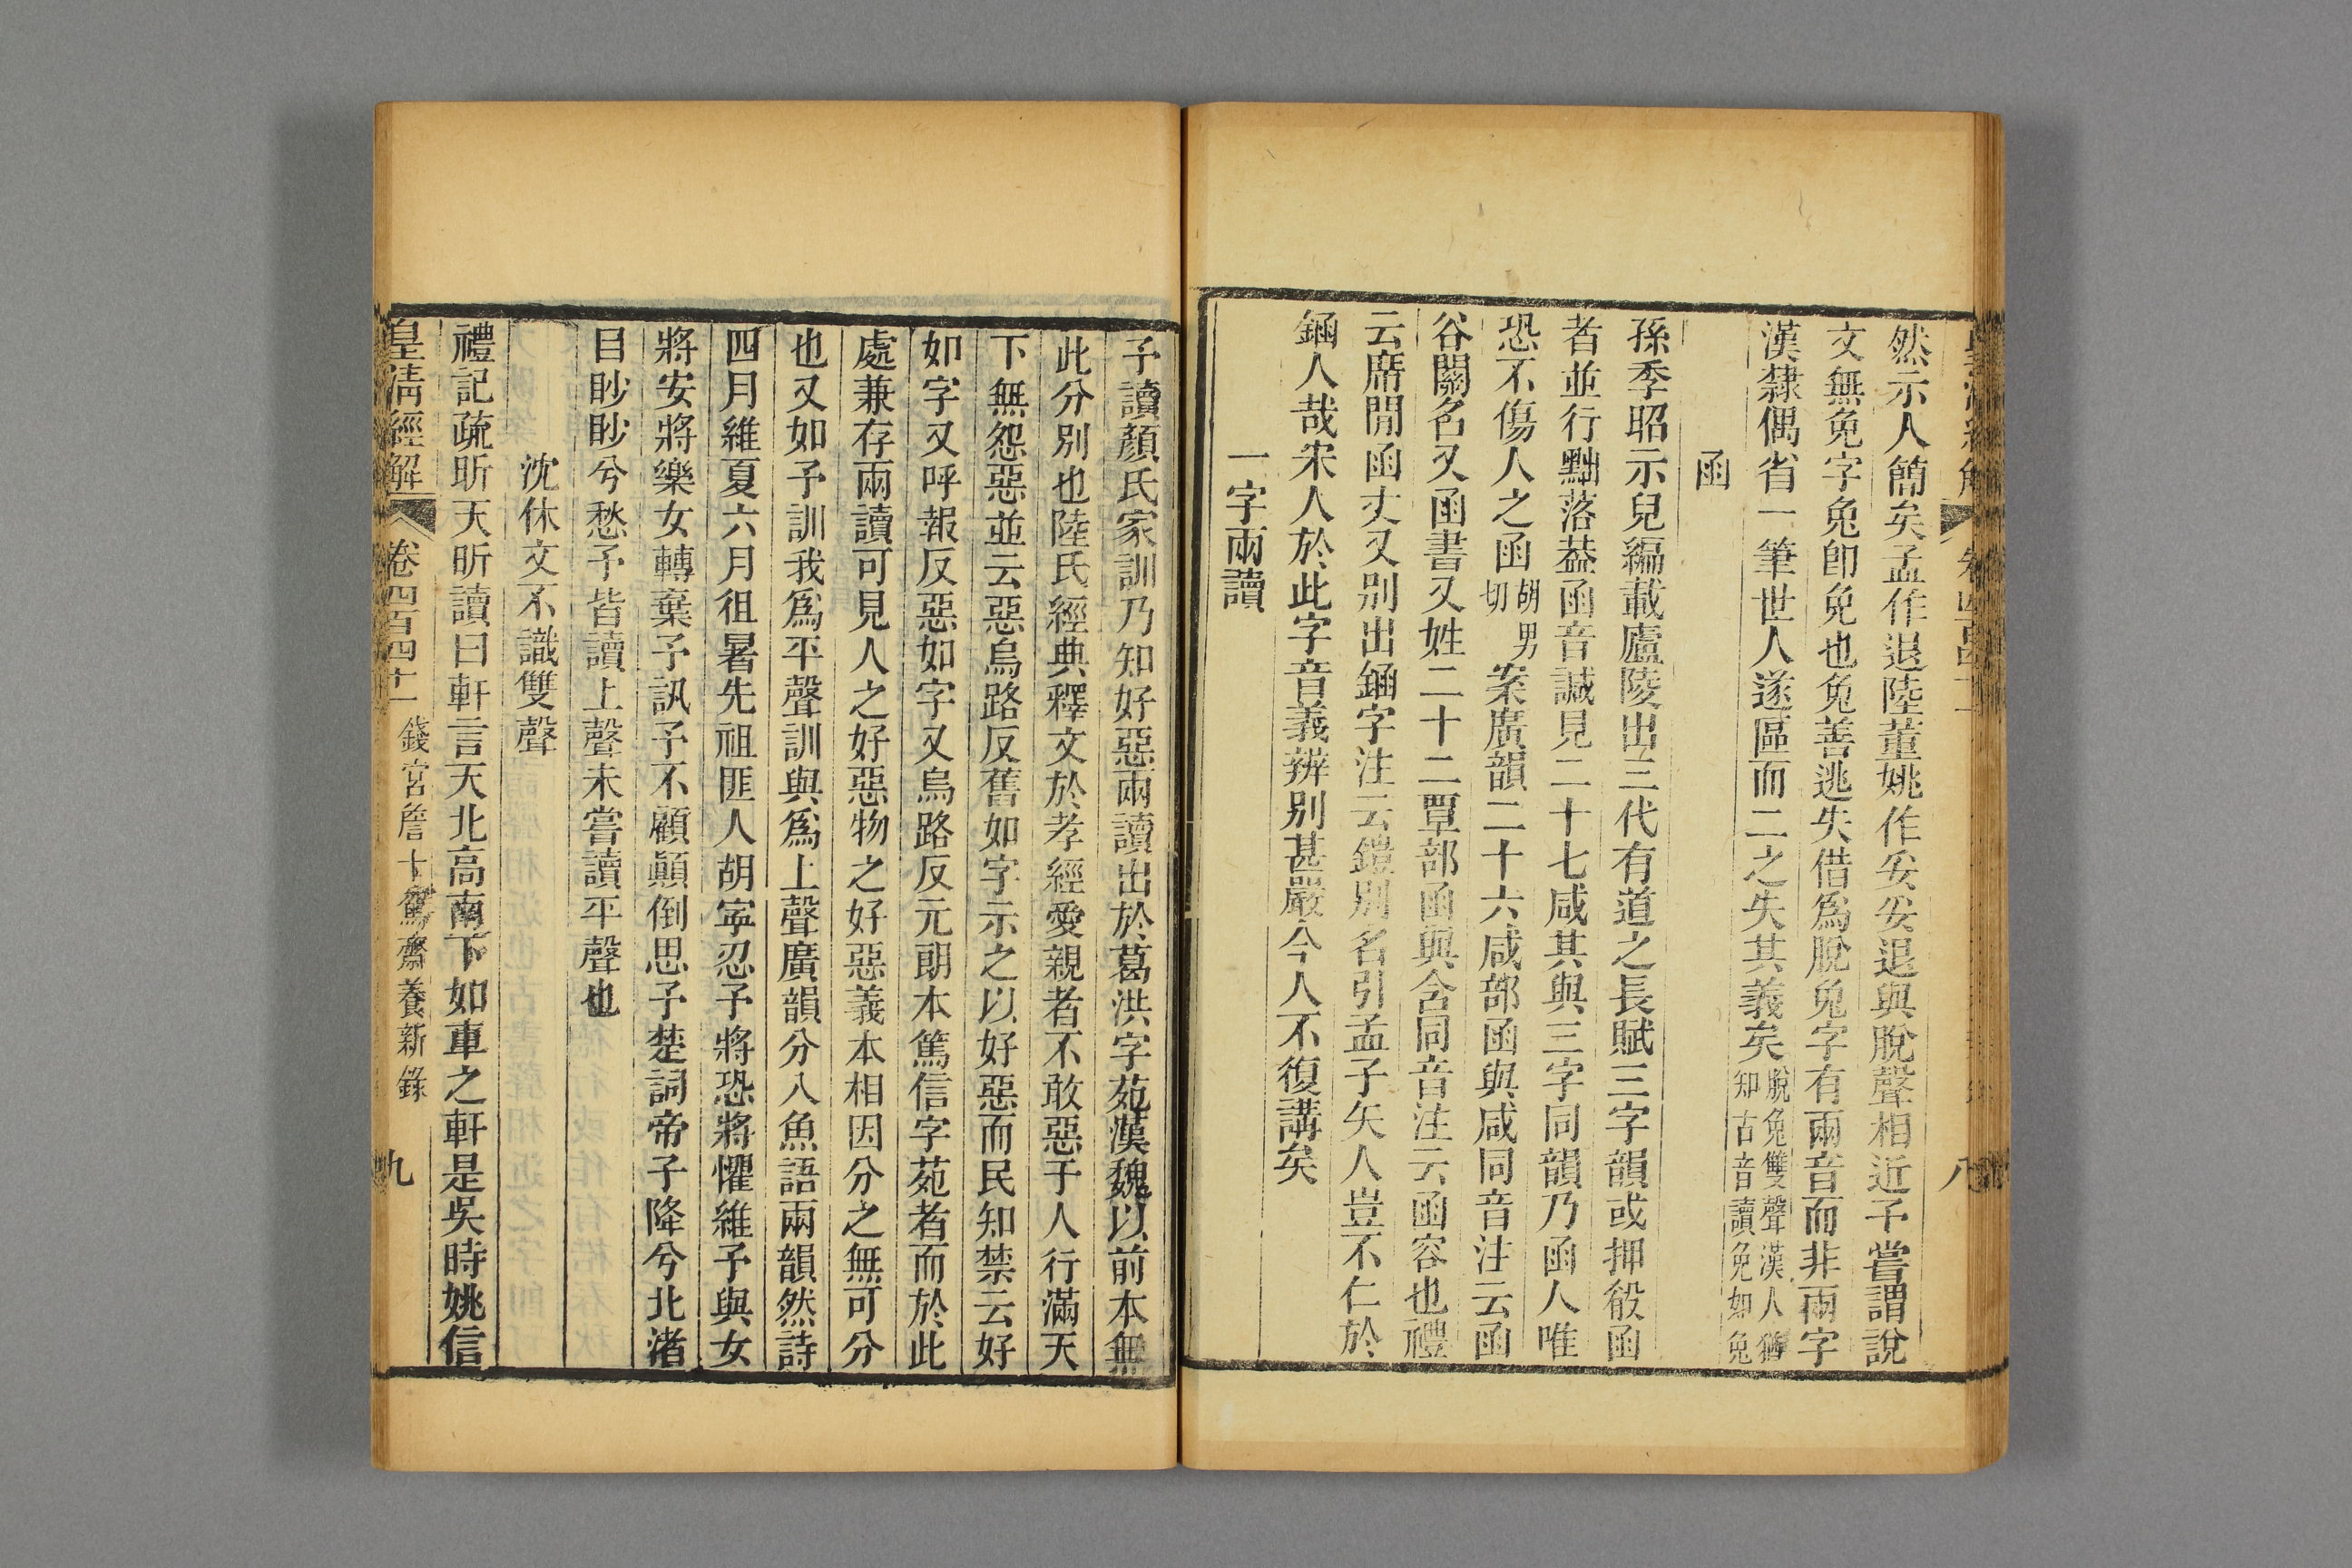 然示人簡矣孟作退陸董姚作妥妥退與脫聲相近予嘗謂說
文無免字兔卽免也兔善逃失借爲脫兔字有兩音而非兩字
漢隸偶省一筆世人遂區而二之失其義矣脫兔雙聲漢人猶
知古音讀免如兔
函
孫季昭示兒編載廬陵出三代有道之長賦三字韻或押殽函
者並行黜落葢函音諴見二十七咸其與三字同韻乃函人唯
恐不傷人之函胡男
切案廣韻二十六咸部函與咸同音注云函
谷關名又函書又姓二十二覃部函與含同音注云函容也禮
云席閒函丈又别出䤴字注云鎧别名引孟子矢人豈不仁於
䤴人哉宋人於此字音義辨别甚嚴今人不復講矣
一字兩讀
八
予讀顏氏家訓乃知好惡兩讀出於葛洪字苑漢魏以前本無
此分别也陸氏經典釋文於孝經愛親者不敢惡于人行滿天
下無怨惡並云惡烏路反舊如字示之以好惡而民知禁云好
如字又呼報反惡如字又烏路反元朗本篤信字苑者而於此
處兼存兩讀可見人之好惡物之好惡義本相因分之無可分
也又如予訓我爲平聲訓與爲上聲廣韻分入魚語兩韻然詩
四月維夏六月徂暑先祖匪人胡寧忍予將恐將懼維予與女
將安將樂女轉棄予訊予不顧顚倒思予楚詞帝子降兮北渚
目眇眇兮愁予皆讀上聲未嘗讀平聲也
沈休文不識雙聲
禮記疏昕天昕讀曰軒言天北高南下如車之軒是吳時姚信
皇淸經解 卷四百四十一 錢宮詹十駕齋養新錄 九